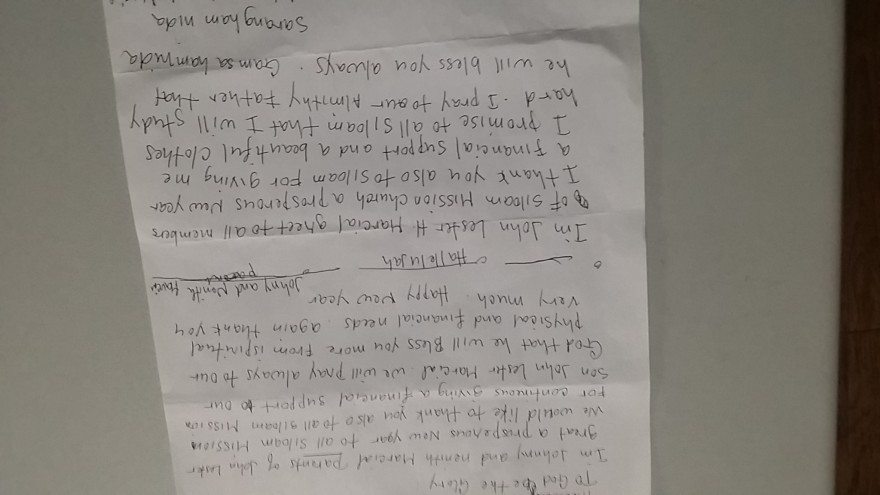 To God be the Glory
I'm Johnny and nenith Marcial parents of John Lester
great a prosperous New year to all Siloam Mission
We would like to thank you also to all siloam Mission
For continuous giving a financial support to our
Son John Lester Marcial. we will pray always to our
God that he will Bless you more from ispiritual
physical and financial needs. again thank you
very much. Happy New year
Johny and Nenith
Hallelujah
I'm John Lester H. Marcial greet to all members
of Siloam Mission church a prosperous New year
I thank you also to siloam for giving me
a financial support and a beautiful clothes
I promise to all siloam that I will study
hard. I pray to our Almithy Father that
he will bless you always. Gamsa hamnida
Sarangham nida